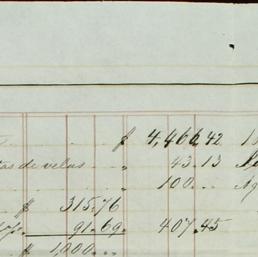 $ 4,466.42
tas de velas „ 43.13
„ 100...
$ 315.76
91.69. 407.45
$ 1,000...